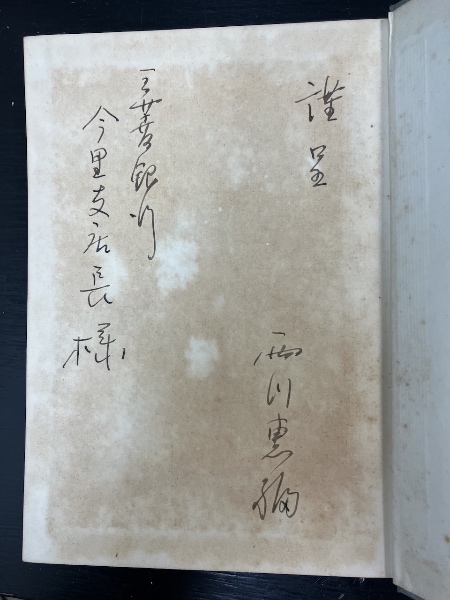 謹呈
西川恵
三菱銀行
今里支店長様